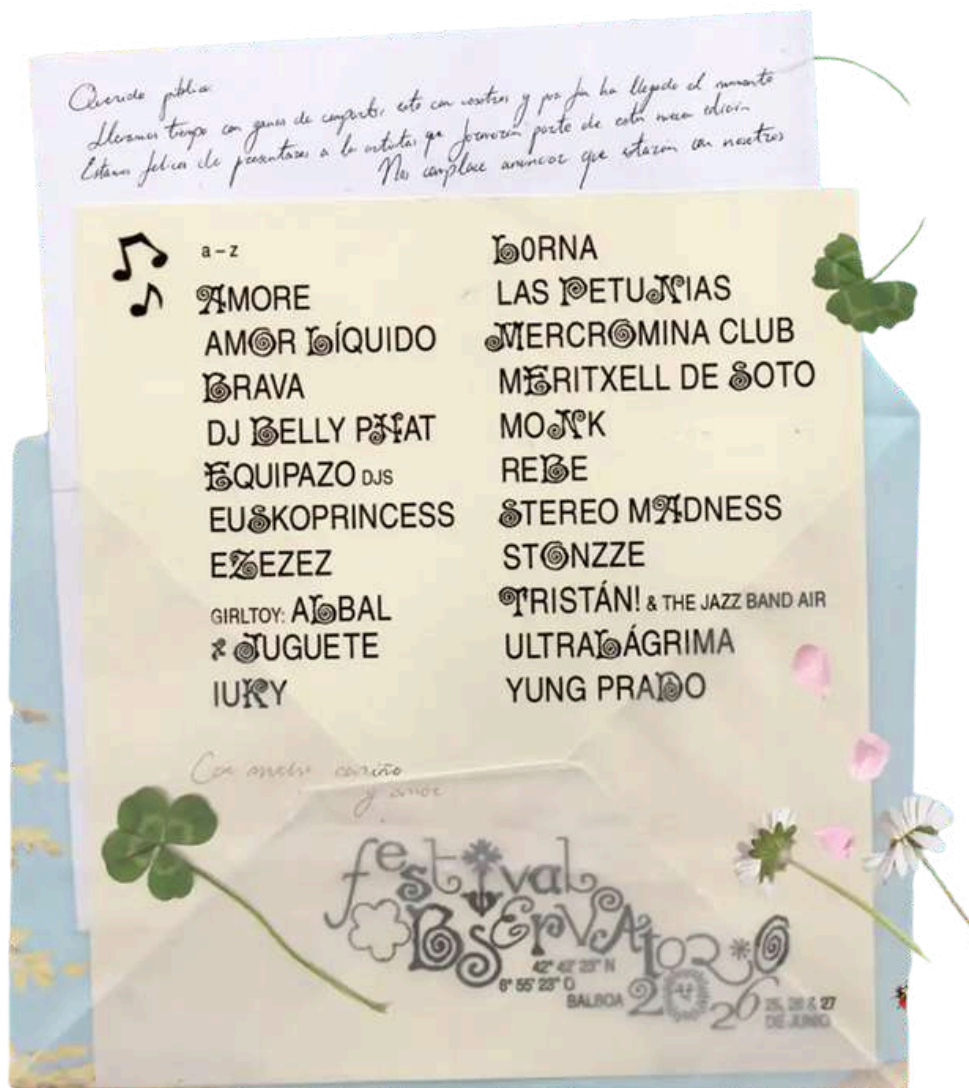 Querido público:
Llevamos tiempo con ganas de compartir esto con vosotros y por fin ha llegado el momento
Estamos felices de presentaros a los artistas que formarán parte de esta nueva edición
Nos complace anunciar que estarán con nosotros
a – z
AMORE
AMOR LÍQUIDO
BRAVA
DJ BELLY PHAT
EQUIPAZO DJS
EUSKOPRINCESS
EZEZEZ
GIRLTOY: ALBAL
JUGUETE
IUKY
L0RNA
LAS PETUNIAS
MERCROMINA CLUB
MERITXELL DE SOTO
MONK
REBE
STEREO MADNESS
STONZZE
TRISTÁN! & THE JAZZ BAND AIR
ULTRALÁGRIMA
YUNG PRADO
Con mucho cariño
y amor
festival
OBSERVATORIO
42° 42' 23" N
6° 55' 23" O
BALBOA 2026 25, 26 & 27
DE JUNIO